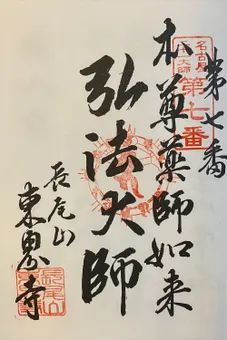 第七番
本尊薬師如来
弘法大師
長尾山
東界寺
名古屋
大師
第七番